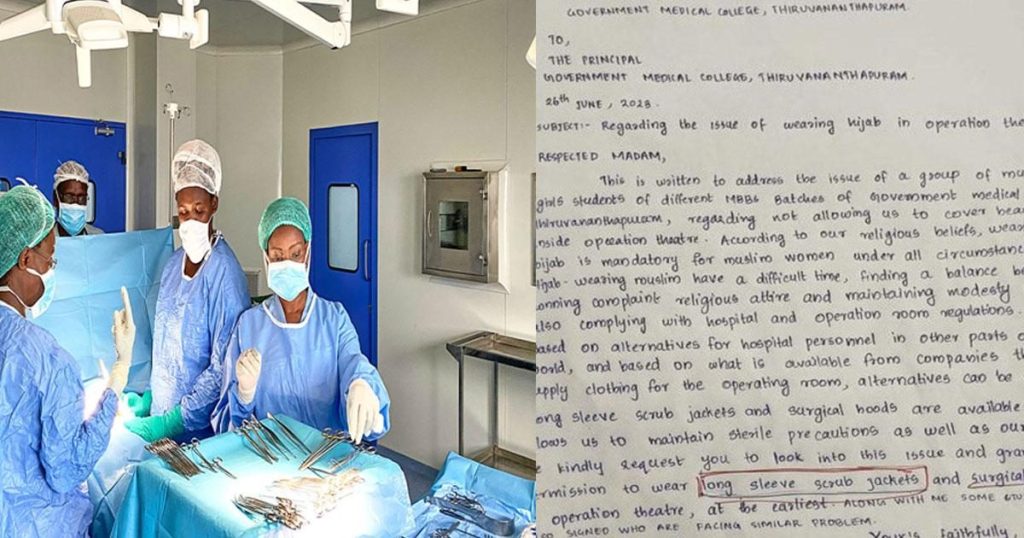 GOVERNMENT MEDICAL COLLEGE, THIRUVANANTHAPURAM.
TO,
THE PRINCIPAL
GOVERNMENT MEDICAL COLLEGE, THIRUVANANTHAPURAM.
26th JUNE, 2023.
SUBJECT:- Regarding the issue of wearing hijab in operation the
RESPECTED MADAM,
This is written to address the issue of a group of mu
girls students of different MBBS Batches of Government medical
Thiruvananthapuram, regarding not allowing us to cover hea
inside operation theatre. According to our religious beliefs, wea
hijab is mandatory for muslim women under all circumstanc
hijab-wearing muslim have a difficult time, finding a balance be
onning complaint religious attire and maintaining modesty
also complying with hospital and operation room regulations.
based on alternatives for hospital personnel in other parts o
world, and based on what is available from companies th
upply clothing for the operating room, alternatives can be
ong sleeve scrub jackets and surgical hoods are available
lows us to maintain sterile precautions as well as our
e kindly request you to look into this issue and gran
rmission to wear long sleeve scrub jackets and surgical
operation theatre, at the earliest. ALONG WITH ME SOME STU
SO SIGNED WHO ARE FACING SIMILAR PROBLEM.
Your's faithfully,